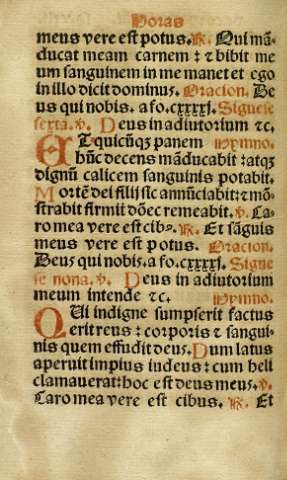 Horas
meus vere est potus. ℟. Qui mā-
ducat meam carnem: ⁊ bibit me
um sanguinem in me manet et ego
in illo dicit dominus. Oracion. De
us qui nobis. a fo. cxxxxj. Siguese
sexta. ℣. Deus in adiutorium ⁊c.
ET quicūqȝ panem Hymno.
hūc decens māducabit: atqȝ
dignū calicem sanguinis potabit.
Mortē dei filij sic annūciabit: ⁊ mō-
strabit firmit dōec remeabit. ℣. Ca-
ro mea vere est cibꝰ. ℟. Et sāguis
meus vere est potus. Oracion.
Deus qui nobis. a fo. cxxxxj. Sigue
se nona. ℣. Deus in adiutorium
meum intende ⁊c. Hymno.
QUi indigne sumpserit factus
erit reus: corporis ⁊ sangui-
nis quem effudit deus. Dum latus
aperuit impius iudeus: cum heli
clamauerat: hoc est deus meus. ℣.
Caro mea vere est cibus. ℟. Et